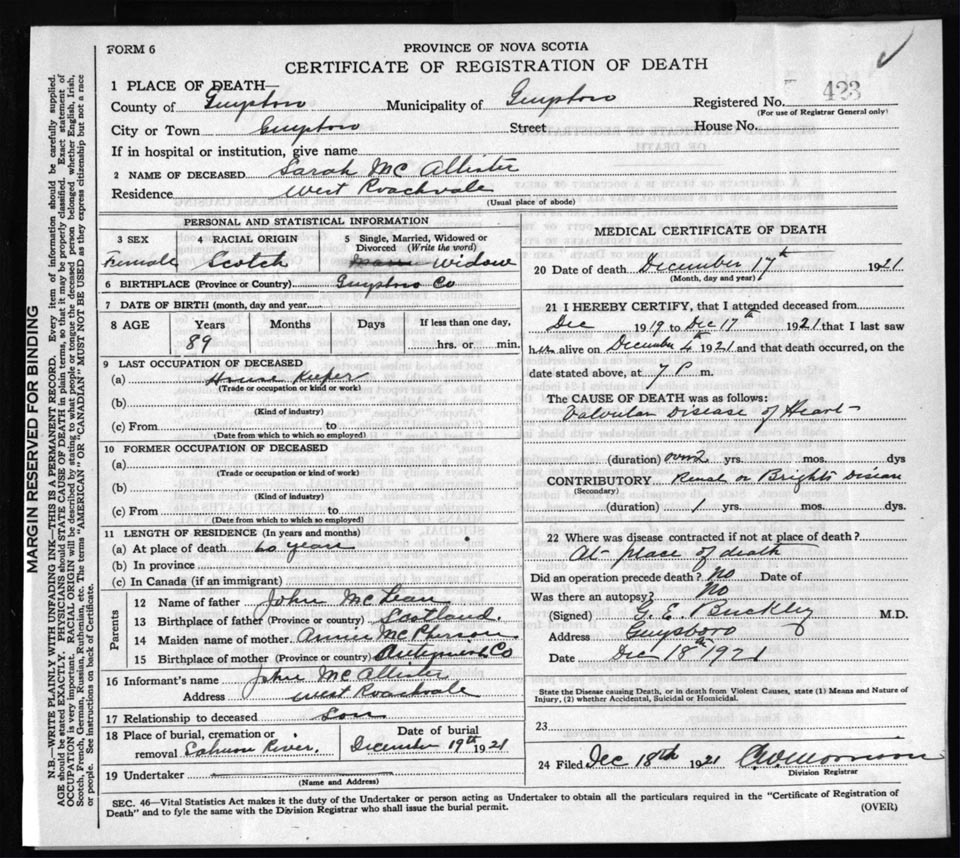 FORM 6
PROVINCE OF NOVA SCOTIA
CERTIFICATE OF REGISTRATION OF DEATH
423
1 PLACE OF DEATH—
County of Guysboro Municipality of Guysboro Registered No.
(For use of Registrar General only)
City or Town Guysboro Street House No.
If in hospital or institution, give name
2 NAME OF DECEASED Sarah McAllister
Residence West Roachvale
(Usual place of abode)
PERSONAL AND STATISTICAL INFORMATION
3 SEX Female
4 RACIAL ORIGIN Scotch
5 Single, Married, Widowed or Divorced (Write the word) Widow
6 BIRTHPLACE (Province or Country) Guysboro Co
7 DATE OF BIRTH (month, day and year)
8 AGE Years Months Days If less than one day,
89 hrs. or min.
9 LAST OCCUPATION OF DECEASED
(a) House Keeper
(Trade or occupation or kind or work)
(b)
(Kind of industry)
(c) From to
(Date from which to which so employed)
10 FORMER OCCUPATION OF DECEASED
(a)
(Trade or occupation or kind of work)
(b)
(Kind of industry)
(c) From to
(Date from which to which so employed)
11 LENGTH OF RESIDENCE (In years and months)
(a) At place of death 60 years
(b) In province
(c) In Canada (if an immigrant)
Parents
12 Name of father John McLean
13 Birthplace of father (Province or country) Scotland.
14 Maiden name of mother Annie McPherson
15 Birthplace of mother (Province or country) Antigonish Co
16 Informant's name John McAllister
Address West Roachvale
17 Relationship to deceased Son
18 Place of burial, cremation or removal Salmon River.
Date of burial December 19th 1921
19 Undertaker
(Name and Address)
MEDICAL CERTIFICATE OF DEATH
20 Date of death December 17th 1921
(Month, day and year)
21 I HEREBY CERTIFY, that I attended deceased from
Dec 1919 to Dec 17th 1921 that I last saw
her alive on December 4th 1921 and that death occurred, on the
date stated above, at 7 P m.
The CAUSE OF DEATH was as follows:
Valvular Disease of Heart
(duration) over 2 yrs. mos. dys
CONTRIBUTORY Renal or Brights Disease
(Secondary)
(duration) 1 yrs. mos. dys.
22 Where was disease contracted if not at place of death?
At place of death
Did an operation precede death? No Date of
Was there an autopsy? No
(Signed) G. E. Buckley M.D.
Address Guysboro
Date Dec 18th 1921
State the Disease causing Death, or in death from Violent Causes, state (1) Means and Nature of
Injury, (2) whether Accidental, Suicidal or Homicidal.
23
24 Filed Dec 18th 1921
Division Registrar
SEC. 46—Vital Statistics Act makes it the duty of the Undertaker or person acting as Undertaker to obtain all the particulars required in the "Certificate of Registration of
Death" and to fyle the same with the Division Registrar who shall issue the burial permit.
(OVER)
MARGIN RESERVED FOR BINDING
N.B.—WRITE PLAINLY WITH UNFADING INK—THIS IS A PERMANENT RECORD. Every item of information should be carefully supplied.
AGE should be stated EXACTLY. PHYSICIANS should STATE CAUSE OF DEATH in plain terms, so that it may be properly classified. Exact statement of
OCCUPATION is very important. RACIAL ORIGIN will be described by stating to what people or tongue the deceased person belonged whether English, Irish,
Scotch, French, German, Russian, Ruthenian, etc. The terms "AMERICAN" OR "CANADIAN" MUST NOT BE USED as they express citizenship but not a race
or people. See instructions on back of Certificate.